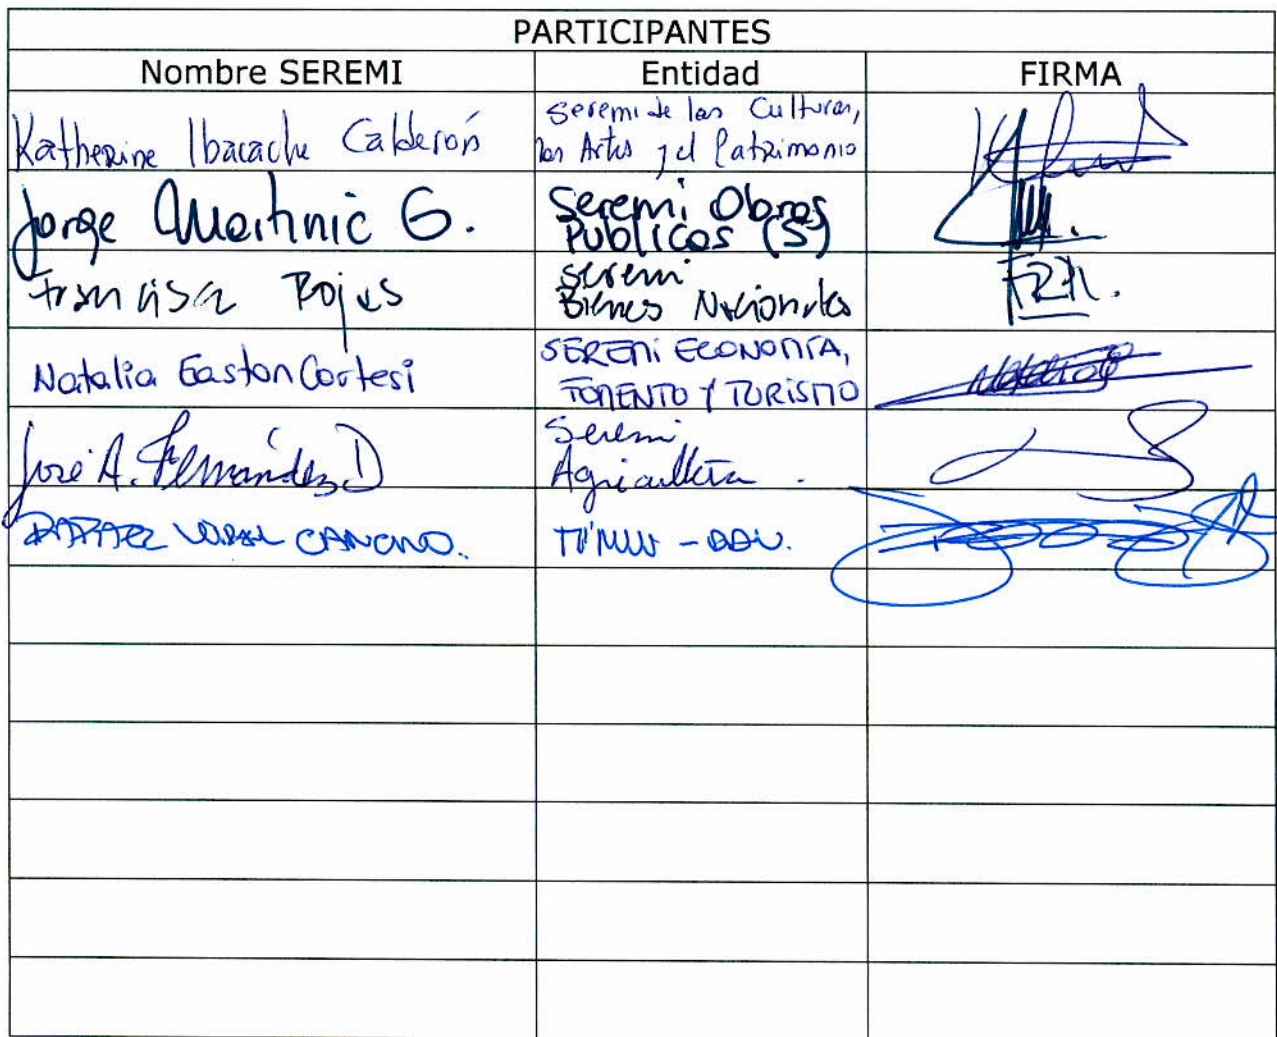 PARTICIPANTES
Nombre SEREMI Entidad FIRMA
Katherine Ibacache Calderón
Seremi de las Culturas,
las Artes y el Patrimonio
Jorge G.
Seremi Obras
Publicas (S)
Francisca Rojas
Seremi
Bienes Nacionales
Natalia Easton Cortesi
SEREMI ECONOMÍA,
FOMENTO Y TURISMO
José A. Fernández D
Seremi
Agricultura.
RAFAEL CANCINO.